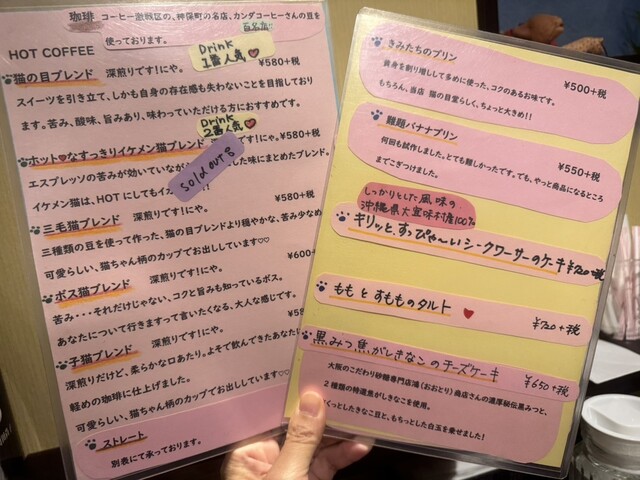 珈琲 コーヒー激戦区の、神保町の名店、カンダコーヒーさんの豆を
使っております。
HOT COFFEE
Drink
1番人気♥
猫の目ブレンド 深煎りです!にゃ。 ¥580+税
スイーツを引き立て、しかも自身の存在感も失わないことを目指しており
ます。苦み、酸味、旨みあり、味わっていただける方におすすめです。
Drink
2番人気♥
ホット♥なすっきりイケメン猫ブレンド です!にゃ。¥580+税
エスプレッソの苦みが効いていながら
した味にまとめたブレンド。
イケメン猫は、HOTにしてもイ
sold out
¥580+税
三毛猫ブレンド 深煎りです!にゃ。
三種類の豆を使って作った、猫の目ブレンドより穏やかな、苦み少なめ
可愛らしい、猫ちゃん柄のカップでお出ししています♡♡
¥600+
ボス猫ブレンド 深煎りです!にゃ。
苦み・・・それだけじゃない、コクと旨みも知っているボス。
あなたについて行きますって言いたくなる、大人な感じです。
子猫ブレンド 深煎りです!にゃ。 ¥58
深煎りだけど、柔らかな口あたり。よそで飲んできたあなたに
軽めの珈琲に仕上げました。
可愛らしい、猫ちゃん柄のカップでお出ししています♡♡
ストレート
別表にて承っております。
きみたちのプリン
¥500+税
黄身を割り増しして多めに使った、コクのあるお味です。
もちろん、当店 猫の目堂らしく、ちょっと大きめ!!
難題バナナプリン
¥550+税
何回も試作しました。とても難しかったです。でも、やっと商品になるところ
までこぎつけました。
しっかりとした風味の
沖縄県大宜味村産100%
キリッと、すっぴゃ〜いシークワーサーのケーキ ¥720+税
ももとすもものタルト ♥ ¥720+税
黒みつ焦がしきなこのチーズケーキ ¥650+税
大阪のこだわり砂糖専門店鴻(おおとり)商店さんの濃厚秘伝黒みつと、
2種類の特選焦がしきなこを使用。
くっとしたきなこ豆と、もちっとした白玉を乗せました!